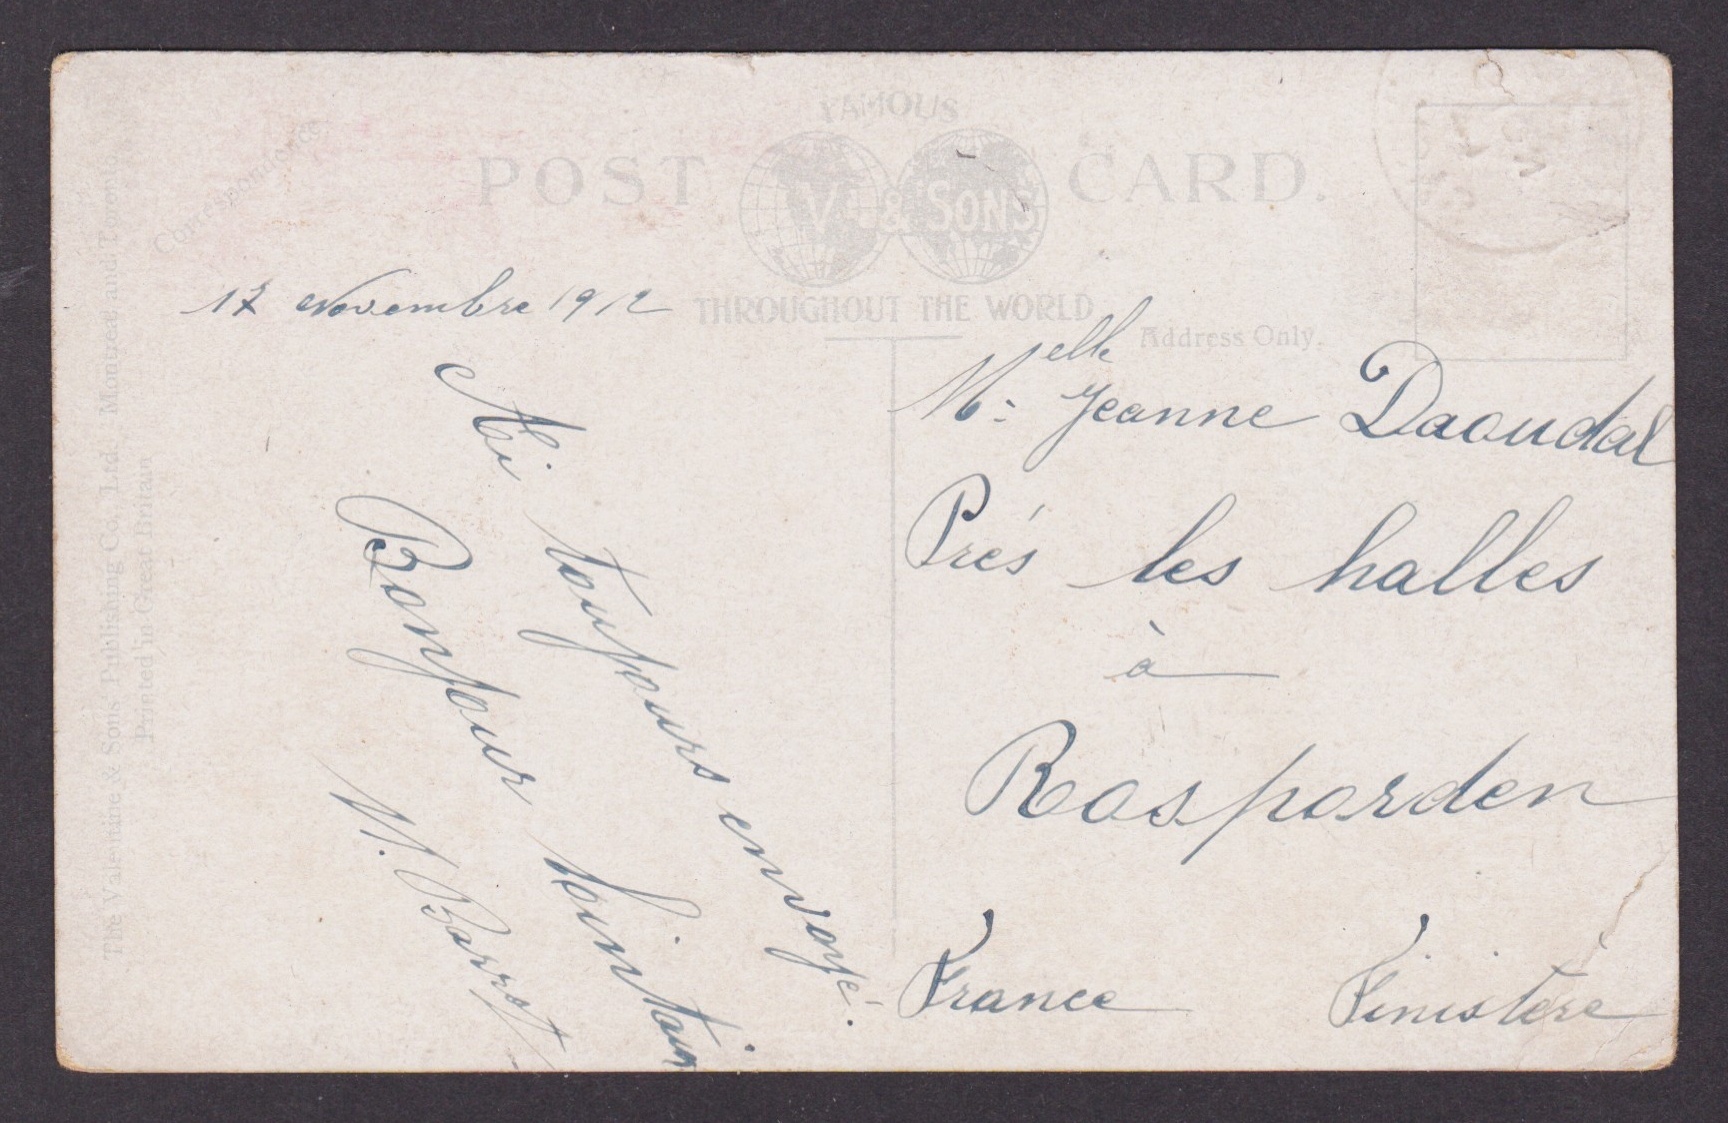 FAMOUS
POST CARD.
V. & SONS
THROUGHOUT THE WORLD
Correspondence
Address Only.
The Valentine & Sons' Publishing Co., Ltd., Montreal and Toronto.
Printed in Great Britain
17 Novembre 1912
toujours envoyé.
Bonjour lointain
M. Barret
Melle Jeanne Daoudal
Prés les halles
à
Rosporden
France Finistère